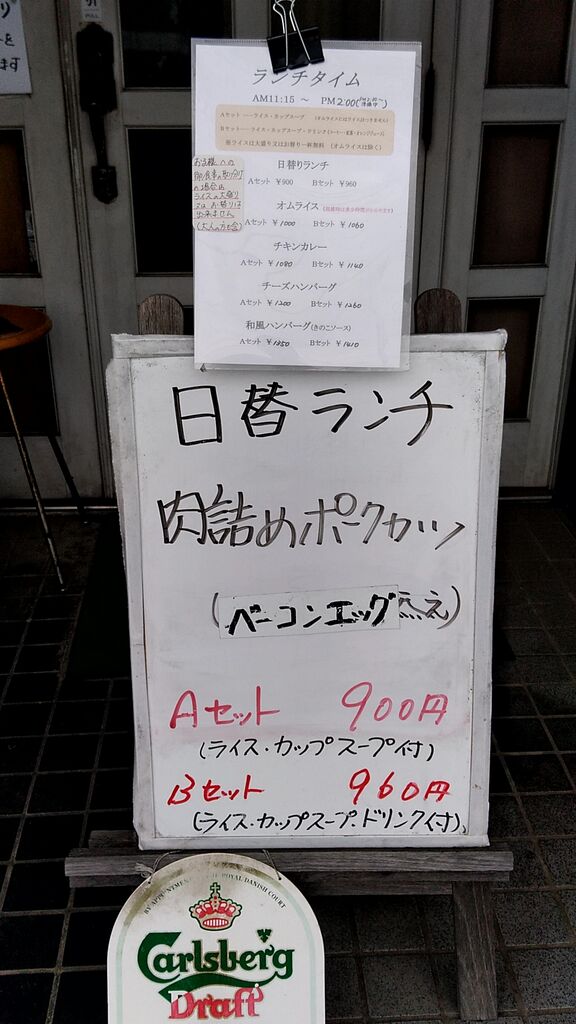 を
ます
引
PULL
ランチタイム
AM11:15 ～ PM2:00
Aセット…ライス・カップスープ (オムライスにはライスは付きません)
Bセット…ライス・カップスープ・ドリンク
※ライスは大盛り又はお替り一杯無料 (オムライスは除く)
日替りランチ
Aセット ￥900 Bセット ￥960
お子様への
御食事の取分け
の場合は
ライスの大盛り
又はお替りは
出来ません
(大人の方も含)
オムライス
Aセット ￥1000 Bセット ￥1060
チキンカレー
Aセット ￥1080 Bセット ￥1140
チーズハンバーグ
Aセット ￥1200 Bセット ￥1260
和風ハンバーグ(きのこソース)
Aセット ￥1350 Bセット ￥1410
日替ランチ
肉詰めポークカツ
(ベーコンエッグ添え)
Aセット 900円
(ライス・カップスープ付)
Bセット 960円
(ライス・カップスープ・ドリンク付)
BY APPOINTMENT ROYAL DANISH COURT
Carlsberg
Draft